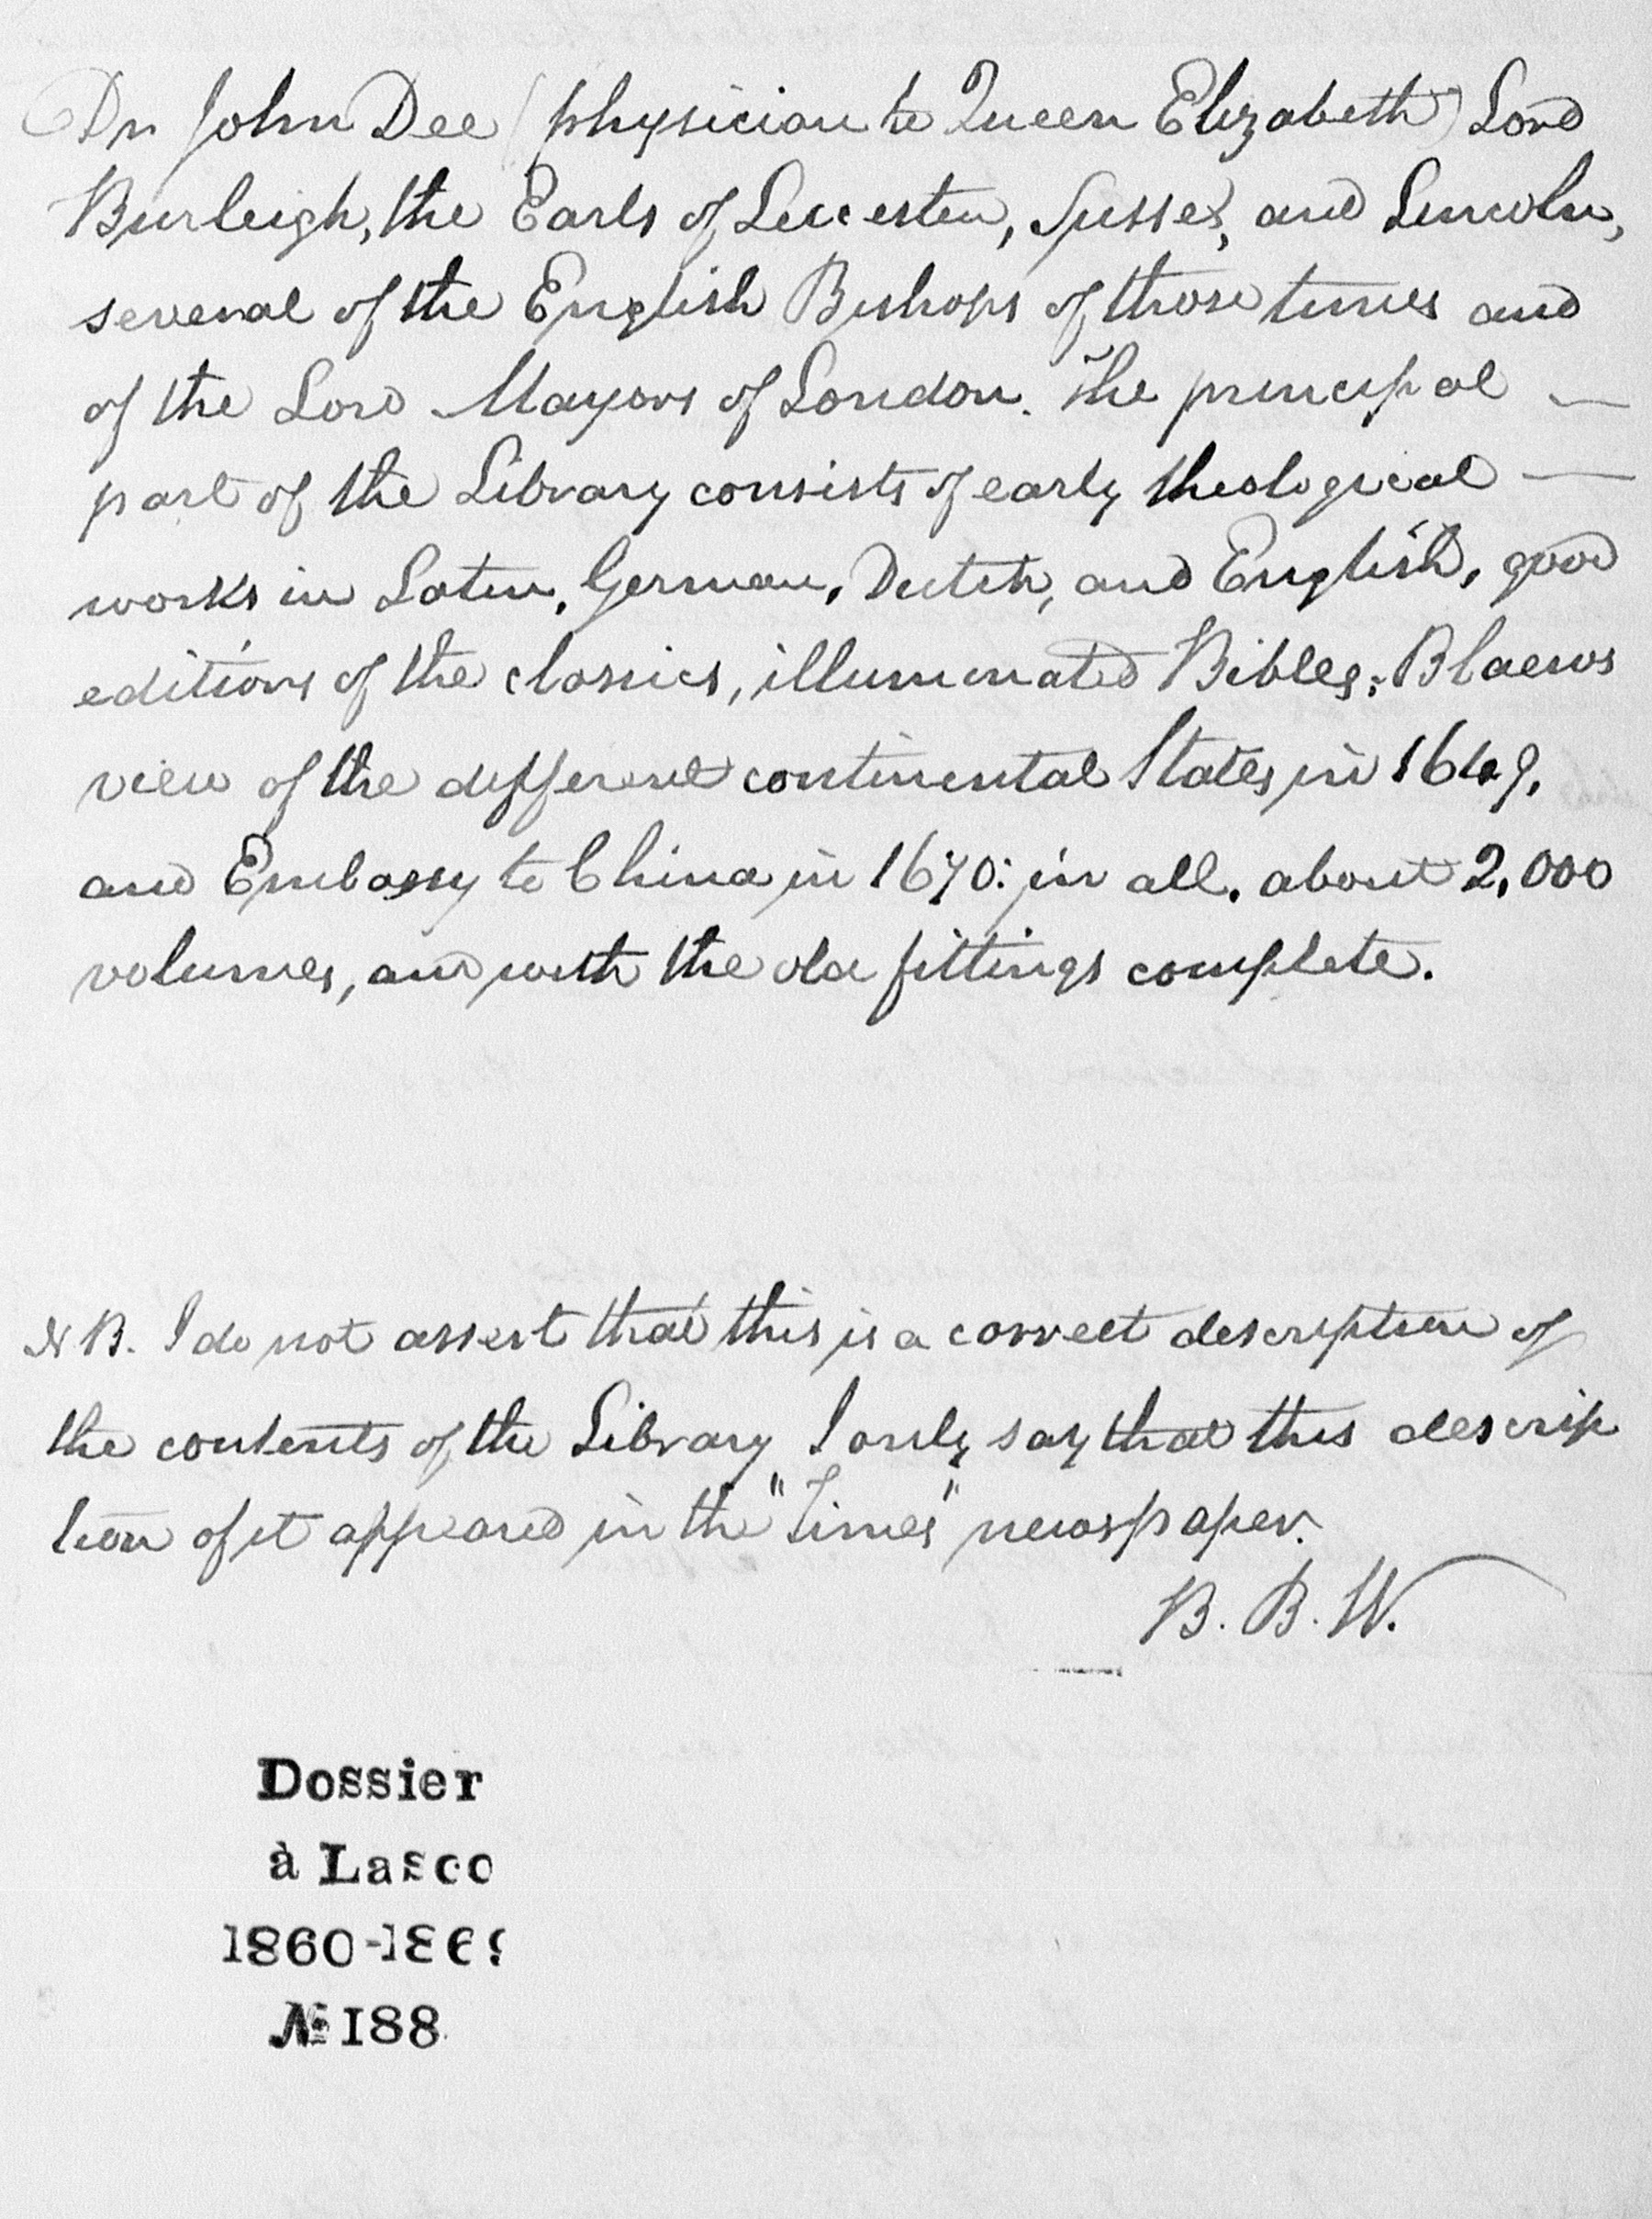 Dr John Dee (physician to Queen Elizabeth) Lord
Burleigh, the Earls of Leicester, Sussex, and Lincoln,
several of the English Bishops of those times and
of the Lord Mayors of London. The principal —
part of the Library consists of early theological —
works in Latin, German, Dutch, and English, good
editions of the classics, illuminated Bibles; Blaews
view of the different continental States in 1649,
and Embassy to China in 1670: in all, about 2,000
volumes, and with the old fittings complete.
NB. I do not assert that this is a correct description of
the contents of the Library I only say that this descrip
tion of it appeared in the "Times" newspaper.
B. B. W.
Dossier
à Lasco
1860-1869
№ 188